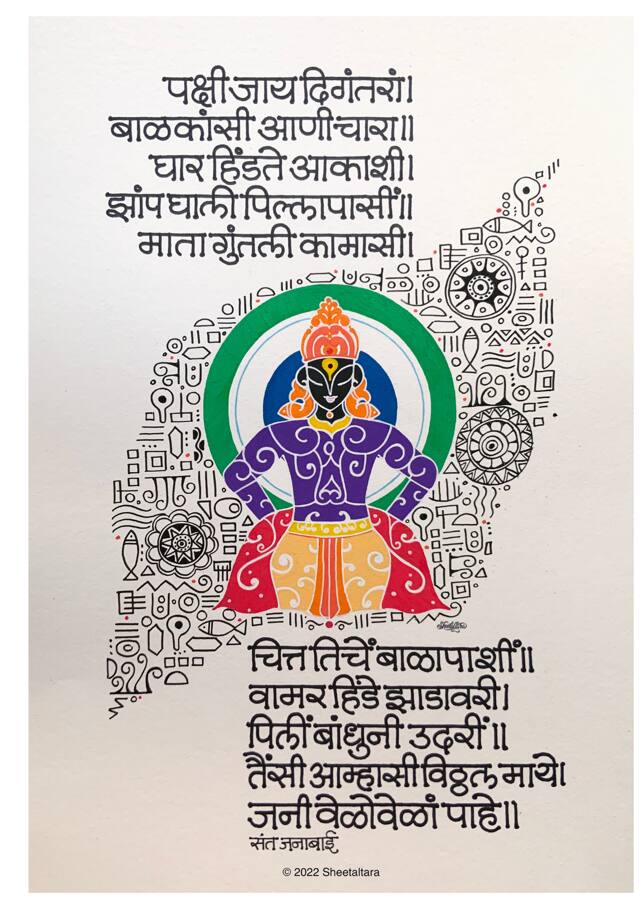 पक्षी जाय दिगंतरां।
बाळकांसी आणी चारा॥
घार हिंडते आकाशी।
झांप घाली पिल्लापासीं॥
माता गुंतली कामासी।
चित्त तिचें बाळापाशीं॥
वामर हिंडे झाडावरी।
पिलीं बांधुनी उदरीं॥
तैंसी आम्हासी विठ्ठल माये।
जनी वेळोवेळां पाहे॥
संत जनाबाई
© 2022 Sheetaltara